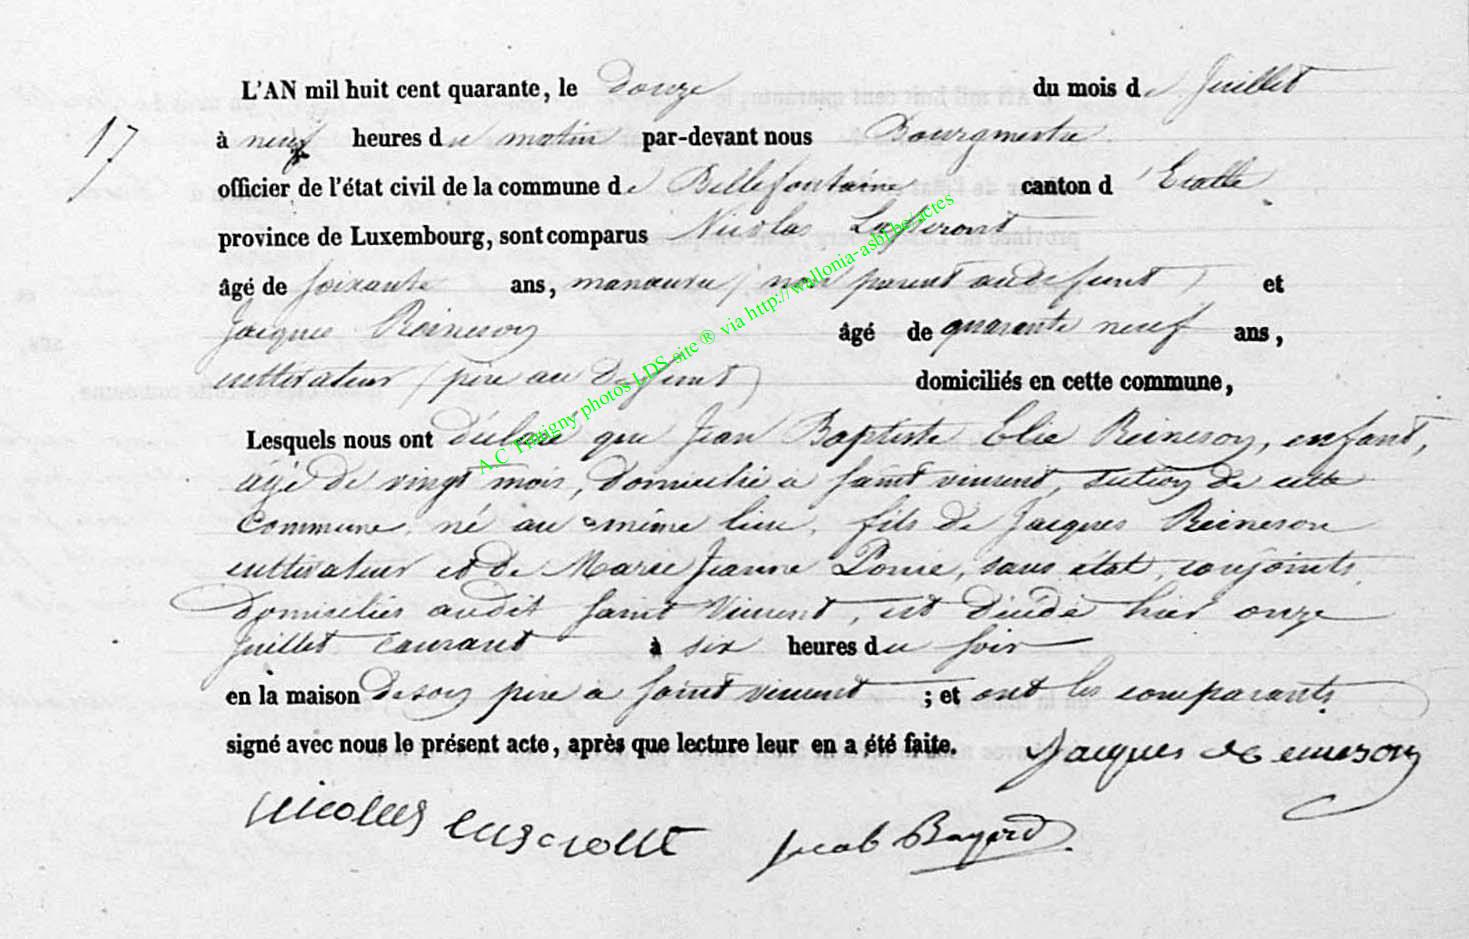 L'AN mil huit cent quarante, le douze du mois de Juillet
17
à neuf heures du matin par-devant nous Bourgmestre
officier de l'état civil de la commune de Bellefontaine canton d'Etalle
province de Luxembourg, sont comparus Nicolas
âgé de soixante ans, manœuvre (non parent au defunt) et
Jacques Reineson âgé de quarante neuf ans,
cultivateur (père au defunt) domiciliés en cette commune,
Lesquels nous ont déclaré que Jean Baptiste Elie Reineson, enfant,
âgé de vingt mois, domicilié à Saint vincent, section de cette
commune, né au même lieu, fils de Jacques Reineson
cultivateur et de Marie Jeanne Ponce, sans état, conjoints
domiciliés audit Saint Vincent, est décédé hier onze
Juillet courant à six heures du soir
en la maison de son père à Saint vincent ; et ont les comparants
signé avec nous le présent acte, après que lecture leur en a été faite. Jacques Reineson
Nicolas
Jacob Bayard
A.C Tintigny photos LDS site ® via http://wallonia-asbl.be/actes